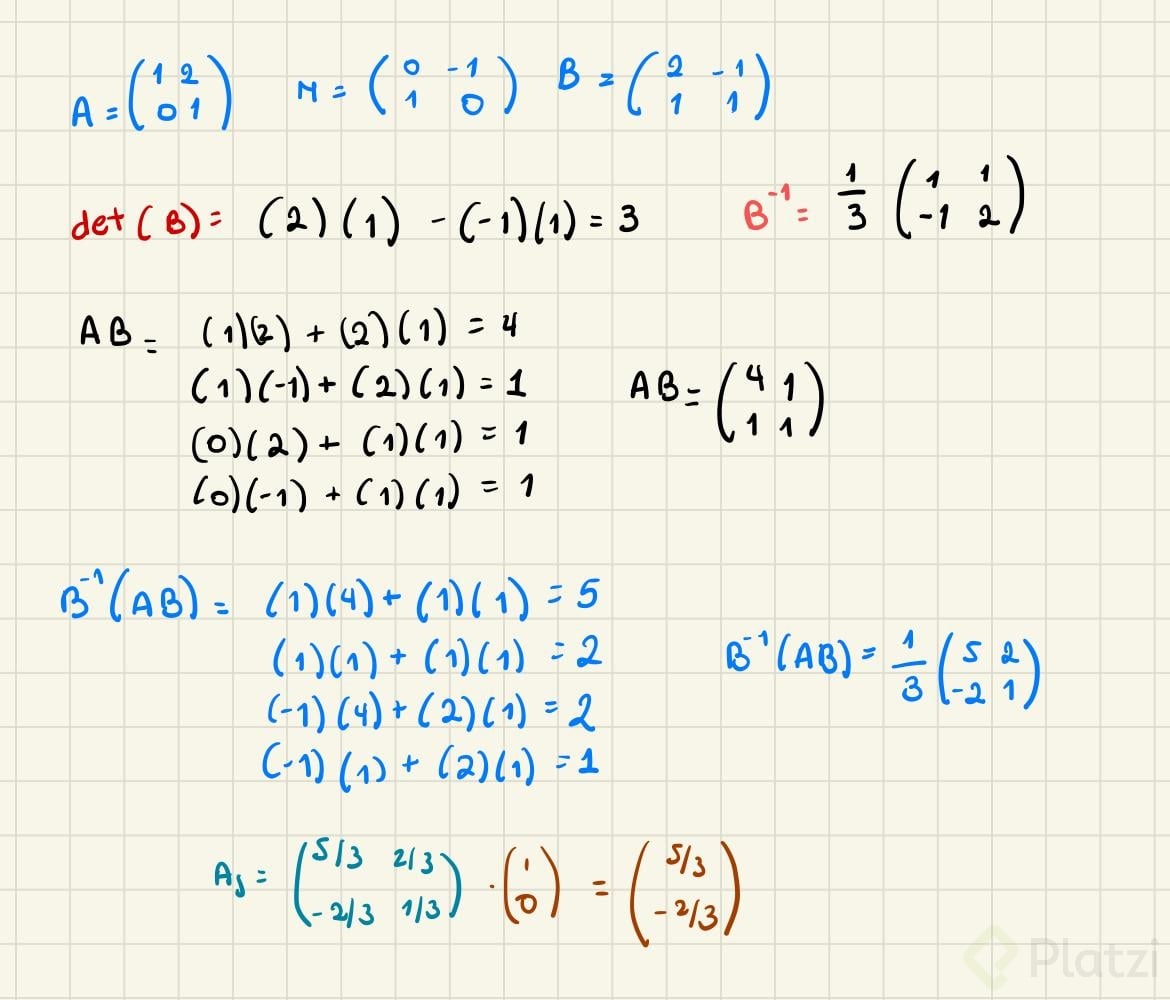 A = (1 2 0 1) M = (0 -1 1 0) B = (2 -1 1 1)
det(B) = (2)(1) - (-1)(1) = 3 B⁻¹ = 1/3 (1 1 -1 2)
AB = (1)(2) + (2)(1) = 4
(1)(-1) + (2)(1) = 1 AB = (4 1 1 1)
(0)(2) + (1)(1) = 1
(0)(-1) + (1)(1) = 1
B⁻¹(AB) = (1)(4) + (1)(1) = 5
(1)(1) + (1)(1) = 2 B⁻¹(AB) = 1/3 (5 2 -2 1)
(-1)(4) + (2)(1) = 2
(-1)(1) + (2)(1) = 1
As = (5/3 2/3 -2/3 1/3) · (1 0) = (5/3 -2/3)
Platzi